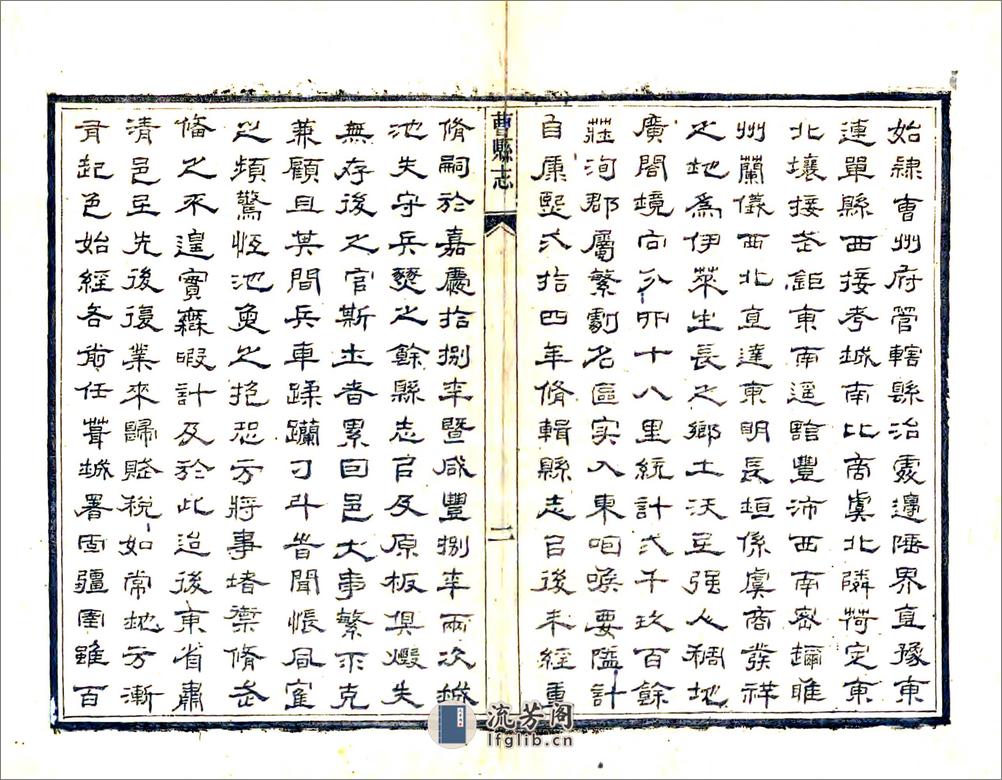 始隸曹州府管轄縣治處邊陲界直豫東
連單縣西接考城南比商虞北隣菏定東
北壤接武鉅東南逼黯豐沛西南密邇睢
州蘭儀西北直達東明長垣係虞商發祥
之地爲伊萊生長之鄉土沃至强人稠地
廣闔境向分卯十八里統計弍千玖百餘
莊洵郡屬繁劇名區实入東咱喉要隘計
自康熙弍拾四年脩輯縣志㠯後未經重
曹縣志
二
脩嗣於嘉慶拾捌年暨咸豐捌年兩次城
池失守兵燹之餘縣志㠯及原板俱燬失
無存後之官斯土者累因邑大事繁不克
兼顧且其間兵車蹂躪刁斗皆聞悵風寉
之頻驚恆池魚之抱恐方將事堵禦脩武
俻之不遑實霖暇計及於此迨後東省肅
清邑至先後復業來歸賦稅如常地方漸
有起色始經各前任葺城署固疆圉雖百
流芳阁
lfglib.cn